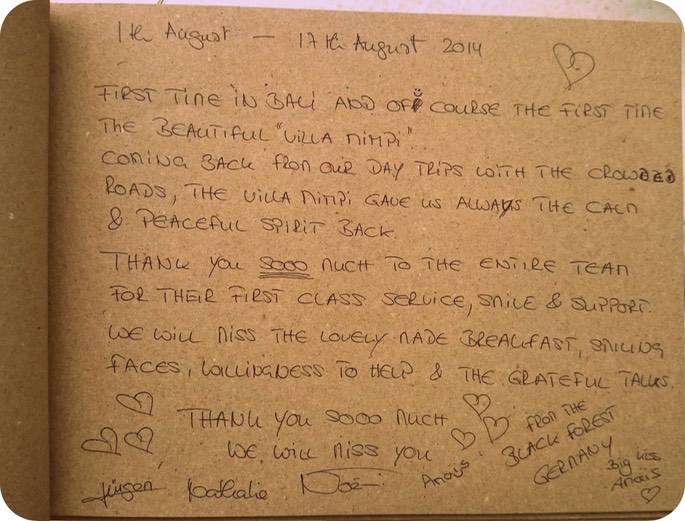 1th August – 17th August 2014
FIRST TIME IN BALI AND OFF COURSE THE FIRST TIME
THE BEAUTIFUL "VILLA MIMPI"
COMING BACK FROM OUR DAY TRIPS WITH THE CROWDED
ROADS, THE VILLA MIMPI GAVE US ALWAYS THE CALM
& PEACEFUL SPIRIT BACK.
THANK YOU SOOO MUCH TO THE ENTIRE TEAM
FOR THEIR FIRST CLASS SERVICE, SMILE & SUPPORT.
WE WILL MISS THE LOVELY MADE BREAKFAST, SMILING
FACES, WILLINGNESS TO HELP & THE GRATEFUL TALKS.
THANK YOU SOOO MUCH
WE WILL MISS YOU
FROM THE
BLACK FOREST
GERMANY
Jürgen Nathalie Noé Anaïs
Big kiss
Anaïs